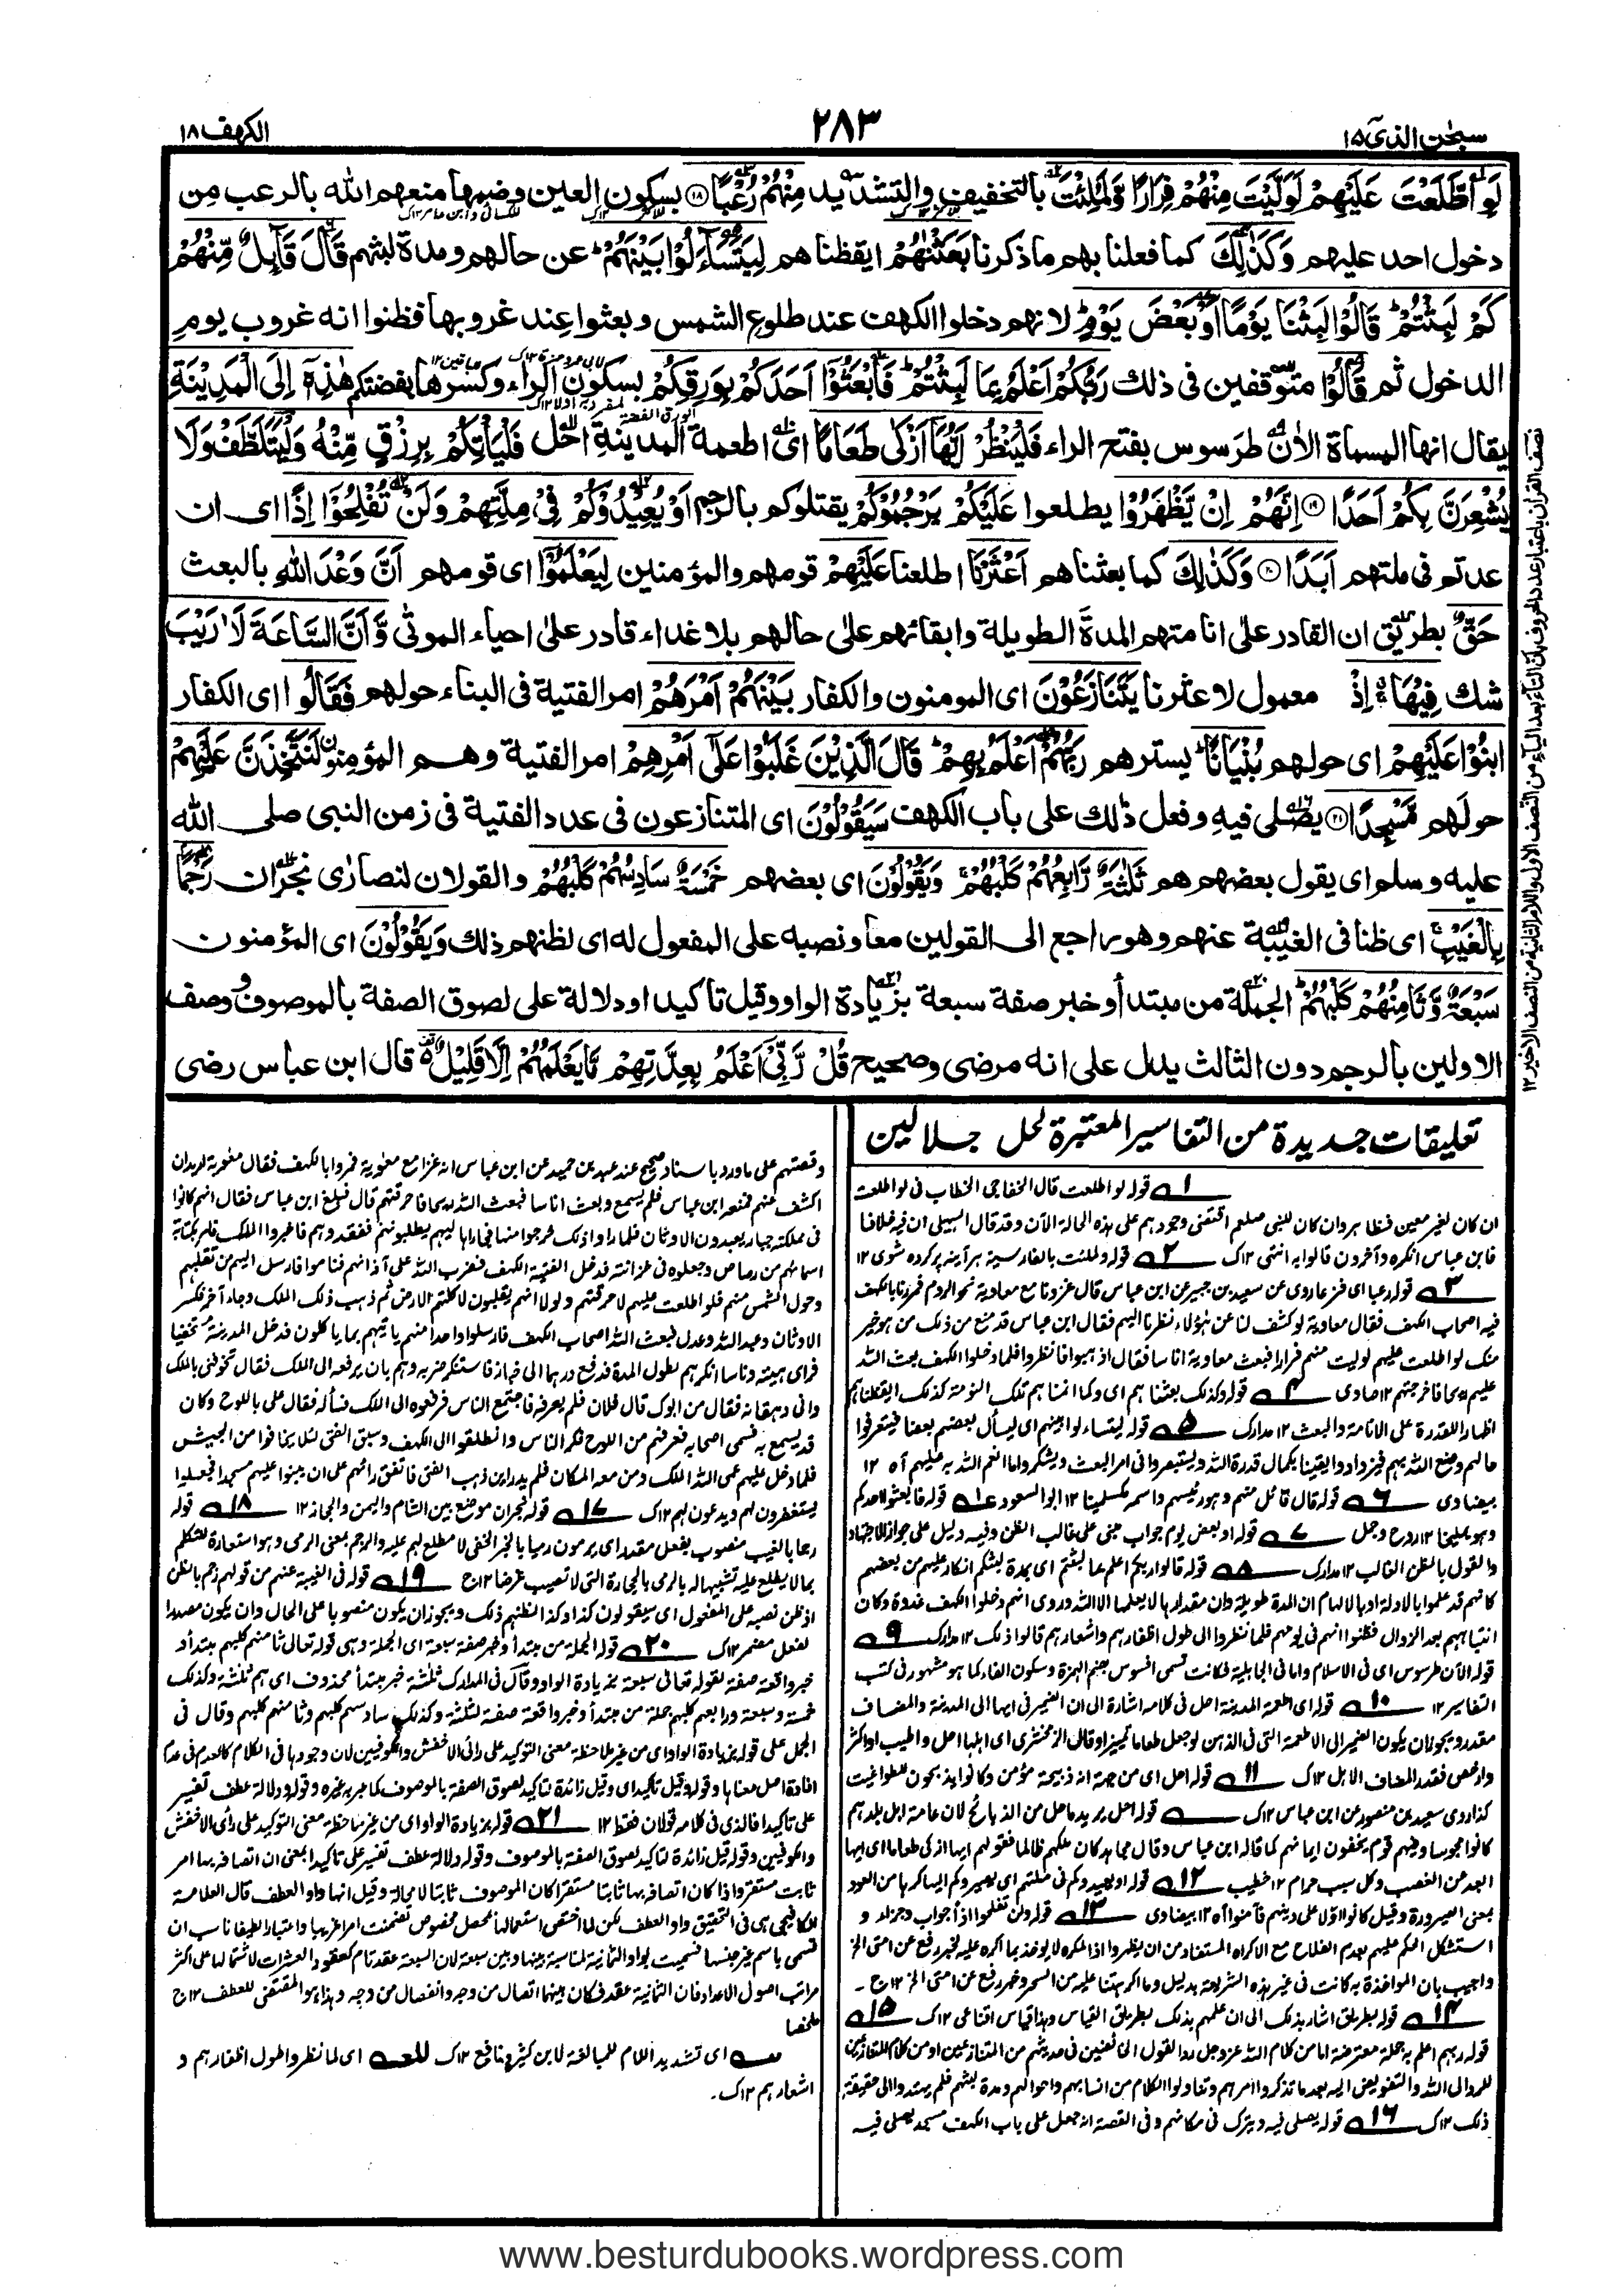 سبحٰن الذیٓ ۱۵
۲۸۳
الکهف ۱۸
لَوِ اطَّلَعْتَ عَلَيْهِمْ لَوَلَّيْتَ مِنْهُمْ فِرَارًا وَّلَمُلِئْتَ بالتخفيف والتشديد مِنْهُمْ رُعْبًا ۝۱۸ بسكون العين وضمها منعهم الله بالرعب من
دخول احد عليهم وَكَذٰلِكَ كما فعلنا بهم ما ذكرنا بَعَثْنٰهُمْ ايقظناهم لِيَتَسَآءَلُوْا بَيْنَهُمْ ؕ عن حالهم ومدة لبثهم قَالَ قَآىِٕلٌ مِّنْهُمْ
كَمْ لَبِثْتُمْ ؕ قَالُوْا لَبِثْنَا يَوْمًا اَوْ بَعْضَ يَوْمٍ ؕ لانهم دخلوا الكهف عند طلوع الشمس وبعثوا عند غروبها فظنوا انه غروب يوم
الدخول ثم قَالُوْا متوقفين فى ذلك رَبُّكُمْ اَعْلَمُ بِمَا لَبِثْتُمْ ؕ فَابْعَثُوْۤا اَحَدَكُمْ بِوَرِقِكُمْ بسكون الراء وكسرها بفضتكم هٰذِهٖۤ اِلَى الْمَدِيْنَةِ
يقال انها المسماة الاٰن طرسوس بفتح الراء فَلْيَنْظُرْ اَيُّهَاۤ اَزْكٰى طَعَامًا اى اطعمة المدينة احل فَلْيَاْتِكُمْ بِرِزْقٍ مِّنْهُ وَلْيَتَلَطَّفْ وَلَا
يُشْعِرَنَّ بِكُمْ اَحَدًا ۝۱۹ اِنَّهُمْ اِنْ يَّظْهَرُوْا يطلعوا عَلَيْكُمْ يَرْجُمُوْكُمْ يقتلوكم بالرجم اَوْ يُعِيْدُوْكُمْ فِيْ مِلَّتِهِمْ وَلَنْ تُفْلِحُوْۤا اِذًا اى ان
عدتم فى ملتهم اَبَدًا ۝۲۰ وَكَذٰلِكَ كما بعثناهم اَعْثَرْنَا اطلعنا عَلَيْهِمْ قومهم والمؤمنين لِيَعْلَمُوْۤا اى قومهم اَنَّ وَعْدَ اللّٰهِ بالبعث
حَقٌّ بطريق ان القادر على انامتهم المدة الطويلة وابقائهم على حالهم بلا غداء قادر على احياء الموتى وَّاَنَّ السَّاعَةَ لَا رَيْبَ
شك فِيْهَا ۚ اِذْ معمول لاعثرنا يَتَنَازَعُوْنَ اى المومنون والكفار بَيْنَهُمْ اَمْرَهُمْ امر الفتية فى البناء حولهم فَقَالُوا اى الكفار
ابْنُوْا عَلَيْهِمْ اى حولهم بُنْيَانًا ؕ يسترهم رَبُّهُمْ اَعْلَمُ بِهِمْ ؕ قَالَ الَّذِيْنَ غَلَبُوْا عَلٰۤى اَمْرِهِمْ امر الفتية وهم المؤمنون لَنَتَّخِذَنَّ عَلَيْهِمْ
حولهم مَّسْجِدًا ۝۲۱ يصلى فيه وفعل ذلك على باب الكهف سَيَقُوْلُوْنَ اى المتنازعون فى عدد الفتية فى زمن النبى صلى الله
عليه وسلم اى يقول بعضهم هم ثَلٰثَةٌ رَّابِعُهُمْ كَلْبُهُمْ ۚ وَيَقُوْلُوْنَ اى بعضهم خَمْسَةٌ سَادِسُهُمْ كَلْبُهُمْ والقولان لنصارى نجران رَجْمًۢا
بِالْغَيْبِ ۚ اى ظنا فى الغيبة عنهم وهو راجع الى القولين معا ونصبه على المفعول له اى لظنهم ذلك وَيَقُوْلُوْنَ اى المؤمنون
سَبْعَةٌ وَّثَامِنُهُمْ كَلْبُهُمْ ؕ الجملة من مبتدأ وخبر صفة سبعة بزيادة الواو وقيل تاكيد او دلالة على لصوق الصفة بالموصوف ووصف
الاولين بالرجم دون الثالث يدل على انه مرضى وصحيح قُلْ رَّبِّيْۤ اَعْلَمُ بِعِدَّتِهِمْ مَّا يَعْلَمُهُمْ اِلَّا قَلِيْلٌ ۬ قال ابن عباس رضى
نصف القرآن باعتبار عدد الحروف بان التاء بعد الياء من النصف الاول واللام الثانية من النصف الاخير ۱۲
تعليقات جديدة من التفاسير المعتبرة لحل جلالين
۱ قوله لو اطلعت قال الخفاجى الخطاب فى لو اطلعت
ان كان لغير معين فظاهر وان كان للنبى صلعم اقتضى وجودهم على هذه الحالة الآن وقد قال السهيلى ان فيه خلافا
فابن عباس انكره وآخرون قالوا به انتهى ۱۲ك ۲ قوله ولملئت بالفارسية هر آينه پر كرده شوى ۱۲
۳ قوله رعبا اى فزعا روى عن سعيد بن جبير عن ابن عباس قال غزونا مع معاوية نحو الروم فمررنا بالكهف
فيه اصحاب الكهف فقال معاوية لو كشف لنا عن هؤلاء نظرنا اليهم فقال ابن عباس قد منع من ذلك من هو خير
منك لو اطلعت عليهم لوليت منهم فرارا فبعث معاوية اناسا فقال اذهبوا فانظروا فلما دخلوا الكهف بعث الله
عليهم ريحا فاخرجتهم ۱۲ صاوى ۴ قوله وكذلك بعثناهم اى وكما انمناهم تلك النومة كذلك ايقظناهم
اظهارا للقدرة على الانامة والبعث ۱۲ مدارك ۵ قوله ليتساءلوا بينهم اى يسأل بعضهم بعضا فيتعرفوا
حالهم وما صنع الله بهم فيزدادوا يقينا بكمال قدرة الله ويستبصروا فى امر البعث ويشكروا ما انعم الله به عليهم آه ۱۲
بيضاوى ۶ قوله قال قائل منهم وهو رئيسهم واسمه مكسلمينا ۱۲ ابو السعود قوله فابعثوا احدكم
وهو يمليخا ۱۲ روح وجمل ۷ قوله او بعض يوم جواب مبنى على غالب الظن وفيه دليل على جواز الاجتهاد
والقول بالظن الغالب ۱۲ مدارك ۸ قوله قالوا ربكم اعلم بما لبثتم اى بمدة لبثكم انكار عليهم من بعضهم
كانهم قد علموا بالادلة او بالالهام ان المدة طويلة وان مقدارها لا يعلمها الا الله وروى انهم دخلوا الكهف غدوة وكان
انتباههم بعد الزوال فظنوا انهم فى يومهم فلما نظروا الى طول اظفارهم واشعارهم قالوا ذلك ۱۲ مدارك ۹
قوله الآن طرسوس اى فى الاسلام واما فى الجاهلية فكانت تسمى افسوس بضم الهمزة وسكون الفاء كما هو مشهور فى كتب
التفاسير ۱۲ ۱۰ قوله اى اطعمة المدينة احل فى كلامه اشارة الى ان الضمير فى ايها الى المدينة والمضاف
مقدر ويجوز ان يكون الضمير الى الاطعمة التى فى الذهن لو جعل طعاما تميزا وقال الزمخشرى اى اهلها احل واطيب او اكثر
وارخص فقدر المضاف الاهل ۱۲ك ۱۱ قوله احل اى من جهة انه ذبيحة مؤمن وكانوا يذبحون للطواغيت
كذا روى سعيد بن منصور عن ابن عباس ۱۲ك قوله احل يريد ما حل من الذبائح لان عامة اهل بلدهم
كانوا مجوسا وفيهم قوم يخفون ايمانهم كما قاله ابن عباس وقال مجاهد كان ملكهم ظالما فقولهم ايها ازكى طعاما اى ايها
ابعد من الغصب وكل سبب حرام ۱۲ خطيب ۱۲ قوله او يعيدوكم فى ملتهم اى يصيروكم اليها كرها من العود
بمعنى الصيرورة وقيل كانوا اولا على دينهم فآمنوا آه ۱۲ بيضاوى ۱۳ قوله ولن تفلحوا اذا جواب وجزاء و
استشكل الحكم عليهم بعدم الفلاح مع الاكراه المستفاد من ان يظهروا اذ المكره لا يؤاخذ بما اكره عليه لخبر رفع عن امتى الخ
واجيب بان المواخذة به كانت فى غير هذه الشريعة بدليل وما اكرهتنا عليه من السحر وخبر رفع عن امتى الخ ۱۲ج ـ
۱۴ قوله بطريق اشار بذلك الى ان علمهم بذلك بطريق القياس وهذا قياس اقناعى ۱۲ك ۱۵
قوله ربهم اعلم بهم جملة معترضة اما من كلام الله عز وجل ردا لقول الخائضين فى حديثهم من المتنازعين او من كلام المتنازعين
للرد الى الله والتفويض اليه بعد ما تذكروا امرهم وتناولوا الكلام من انسابهم واحوالهم ومدة لبثهم فلم يهتدوا الى حقيقة
ذلك ۱۲ك ۱۶ قوله يصلى فيه ويترك فى مكانهم وفى القصة انه جعل على باب الكهف مسجد يصلى فيه
وقصتهم على ما ورد باسناد صحيح عند عبد بن حميد عن ابن عباس انه غزا مع معوية فمروا بالكهف فقال معوية اريد ان
اكشف عنهم فمنعه ابن عباس فلم يسمع وبعث اناسا فبعث الله ريحا فاخرجتهم قال فبلغ ابن عباس فقال انهم كانوا
فى مملكة جبار يعبدون الاوثان فلما راوا ذلك خرجوا منها
اسمائهم من رصاص وجعلوه فى خزانته فدخل الفتية الكهف فضرب الله على آذانهم فناموا فارسل اليهم من تقلبهم
وحول الشمس منهم فلو اطلعت عليهم لاحرقتهم ولولا انهم يقلبون لاكلتهم الارض ثم ذهب ذلك الملك وجاء آخر فكسر
الاوثان وعبد الله وعدل فبعث الله اصحاب الكهف فارسلوا واحدا منهم ياتيهم بما ياكلون فدخل المدينة مختفيا
فراى هيئة وناسا انكرهم لطول المدة فدفع درهما الى خباز فاستنكر ضربه وهم بان يرفعه الى الملك فقال تخوفنى بالملك
وابى دهقانه فقال من ابوك قال فلان فلم يعرفه فاجتمع الناس فرفعوه الى الملك فسأله فقال على باللوح وكان
قد يسمع به فسمى اصحابه فعرفهم من اللوح فكبر الناس وانطلقوا الى الكهف وسبق الفتى لئلا يخافوا من الجيش
فلما دخل عليهم عمى الله الملك ومن معه المكان فلم يدر اين ذهب الفتى فاتفق رائهم على ان يبنوا عليهم مسجدا فجعلوا
يستغفرون لهم ويدعون لهم ۱۲ك ۱۷ قوله نجران موضع بين الشام واليمن والحجاز ۱۲ ۱۸ قوله
رجما بالغيب منصوب بفعل مقدر اى يرمون رميا بالخبر الخفى لا مطلع لهم عليه والرجم بمعنى الرمى وهو استعارة للتكلم
بما لا يطلع عليه تشبيها له بالرمى بالحجارة التى لا تصيب غرضا ۱۲ج ۱۹ قوله فى الغيبة عنهم من قولهم رجم بالظن
اذ ظن نصبه على المفعول اى سيقولون كذا وكذا لظنهم ذلك ويجوز ان يكون منصوبا على الحال وان يكون مصدرا
لفعل مضمر ۱۲ك ۲۰ قوله الجملة من مبتدأ وخبر صفة سبعة اى الجملة وهى قوله تعالى ثامنهم كلبهم مبتدأ و
خبر واقعة صفة لقوله تعالى سبعة بزيادة الواو وقال فى المدارك ثلثة خبر مبتدأ محذوف اى هم ثلثة وكذلك
خمسة وسبعة ورابعهم كلبهم جملة من مبتدأ وخبر واقعة صفة لثلثة وكذلك سادسهم كلبهم وثامنهم كلبهم وقال فى
الجمل على قوله بزيادة الواو اى من غير ملاحظة معنى التوكيد على رائ الاخفش والكوفيين لان وجودها فى الكلام كالعدم فى عدم
افادة اصل معناها وقوله وقيل تاكيد اى وقيل زائدة لتاكيد لصوق الصفة بالموصوف كما عبر به غيره وقوله ودلالة عطف تفسير
على تاكيد فالذى فى كلامه قولان فقط ۱۲ ۲۱ قوله بزيادة الواو اى من غير ملاحظة معنى التوكيد على رأى الاخفش
والكوفيين وقوله قيل زائدة لتاكيد لصوق الصفة بالموصوف وقوله دلالة عطف تفسير على تاكيد بمعنى ان اتصافه بها امر
ثابت مستقر واذا كان اتصافه بها ثابتا مستقرا كان الموصوف ثابتا لا محالة وقيل انها واو العطف قال العلامة
الكافيجى هى فى التحقيق واو العطف لكن لما اختص استعمالها بمحل مخصوص تضمنت امرا غريبا واعتبارا لطيفا ناسب ان
تسمى باسم غير جنسها فسميت بواو الثمانية لمناسبة بينها وبين سبعة لان السبعة عقد تام كعقود العشرات لاشتمالها على اكثر
مراتب اصول الاعداد فان الثمانية عقد فكان بينهما اتصال من وجه وانفصال من وجه وهذا هو المقتضى للعطف ۱۲ج
ملخصا
اى تشديد اللام للمبالغة لابن كثير ونافع ۱۲ك اى لما نظروا طول اظفارهم و
اشعارهم ۱۲ك ـ
www.besturdubooks.wordpress.com